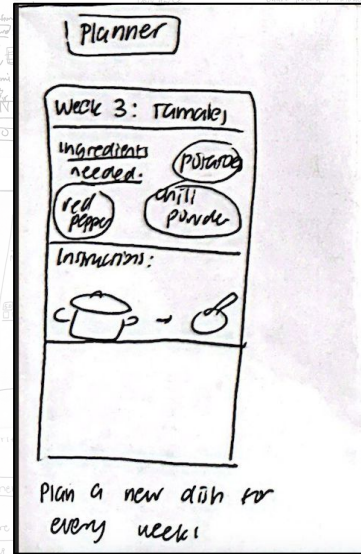 Planner
Week 3: Tamales
Ingredients
needed:
potatoes
red
pepper
chili
powder
Instructions:
Plan a new dish for
every week!